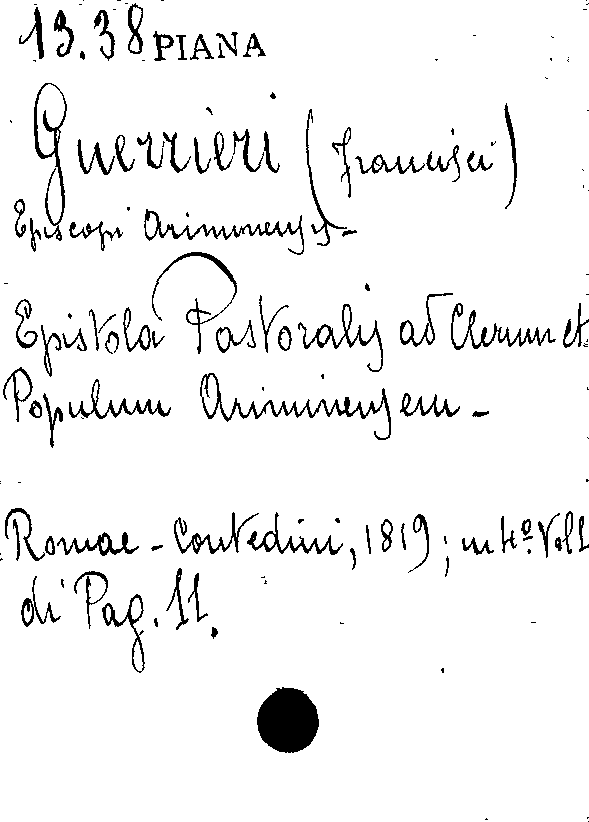 13.38 PIANA
Guerrieri (Francisci)
Episcopi Ariminensis -
Epistola Pastoralis ad Clerum et
Populum Ariminensem -
Romae - Contedini, 1819; in 4º. Vol 1
di Pag. 11.